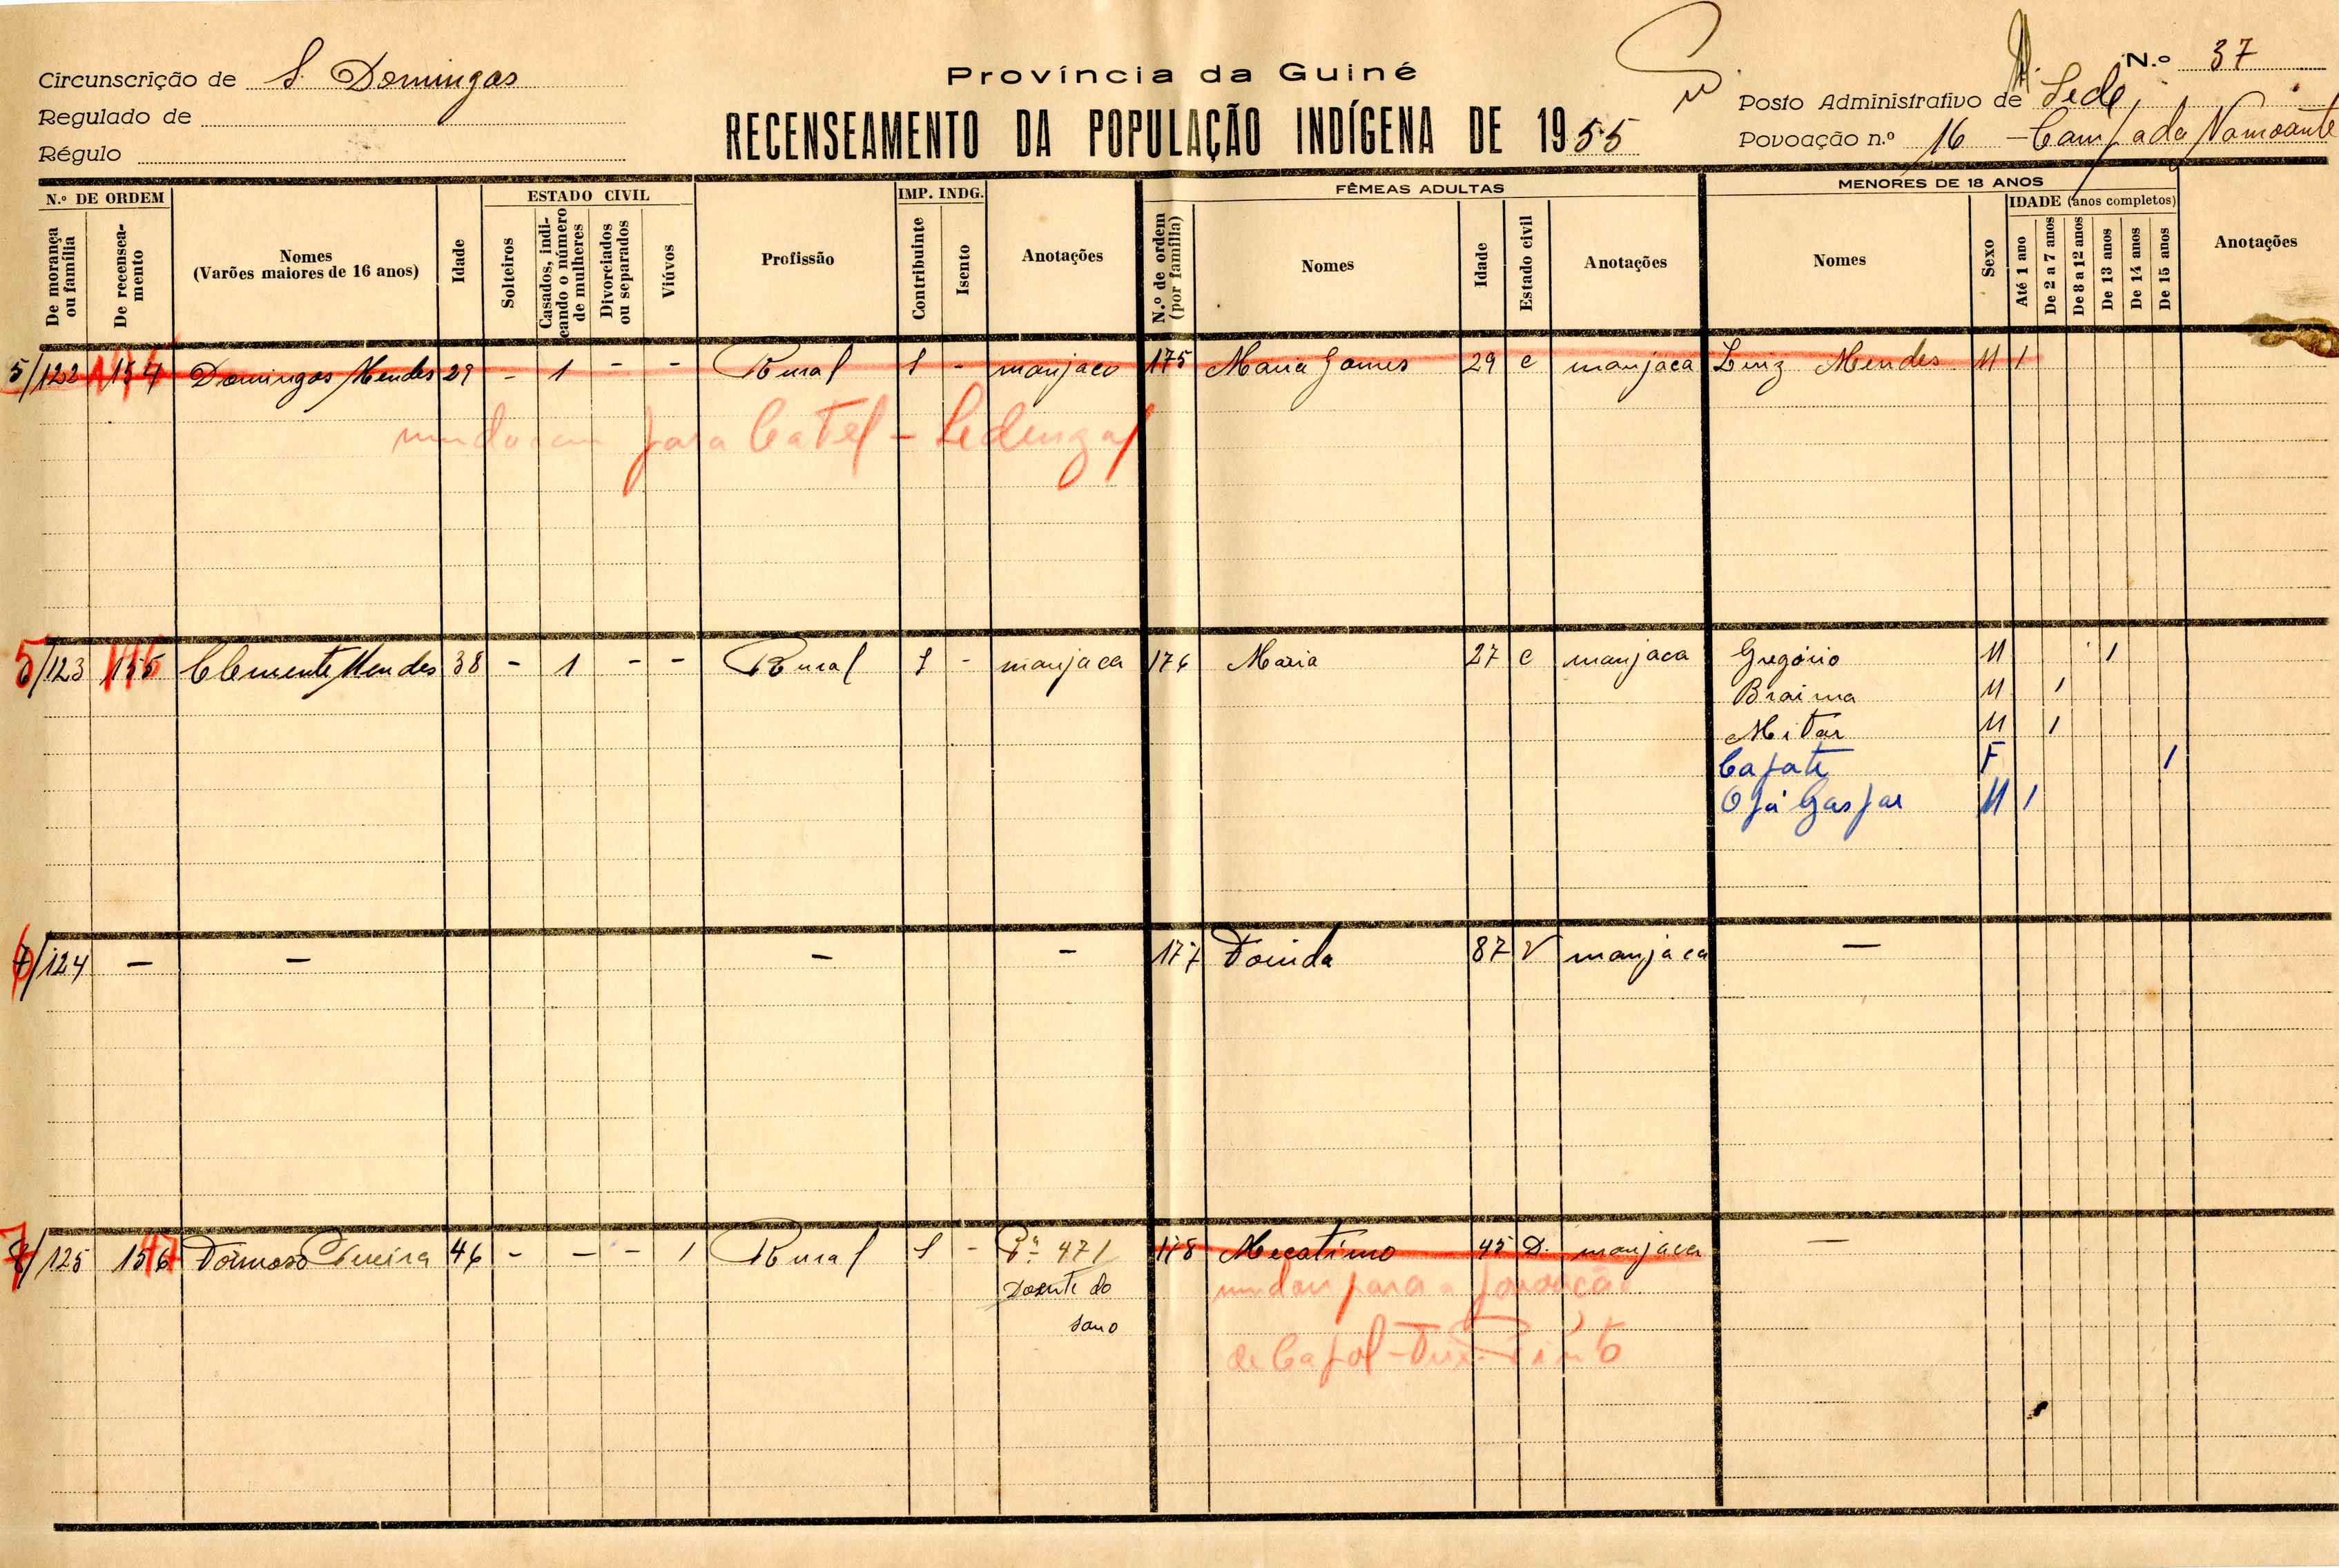 Província da Guiné
RECENSEAMENTO DA POPULAÇÃO INDÍGENA DE 1955
Circunscrição de S. Domingos
Regulado de
Régulo
N.º 37
Posto Administrativo de Sede
Povoação n.º 16 —
N.º DE ORDEM
De morança ou família
De recenseamento
Nomes
(Varões maiores de 16 anos)
Idade
ESTADO CIVIL
Solteiros
Casados, indicando o número de mulheres
Divorciados ou separados
Viúvos
Profissão
IMP. INDG.
Contribuinte
Isento
Anotações
FÊMEAS ADULTAS
N.º de ordem (por família)
Nomes
Idade
Estado civil
Anotações
MENORES DE 18 ANOS
Nomes
Sexo
IDADE (anos completos)
Até 1 ano
De 2 a 7 anos
De 8 a 12 anos
De 13 anos
De 14 anos
De 15 anos
Anotações
5/122 154 Domingos Mendes 29 - 1 - - Rural 1 - manjaco 175 Maria Gomes 29 C manjaca Luiz Mendes M 1
mudaram para Catel -
/123 155 Clemente Mendes 38 - 1 - - Rural 1 - manjaca 176 Maria 27 C manjaca Gregório M 1
Braima M 1
Mitar M 1
Cafate F 1
Gaspar M 1
/124 - - - - 177 87 V manjaca —
/125 156 46 - - - 1 Rural 1 - 471 178 Mecatimo 45 D. manjaca —
Doente do
sono
mudou para a povoação
de